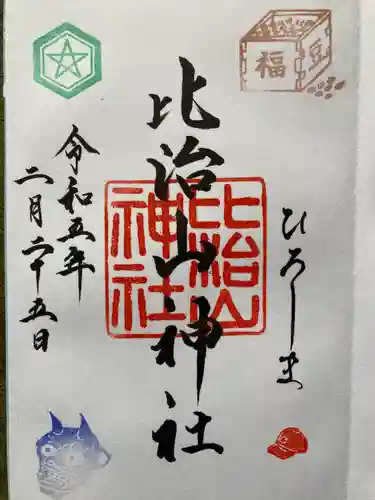 ひろしま
比治山神社
比治山
神社
令和五年
二月二十五日
福
豆